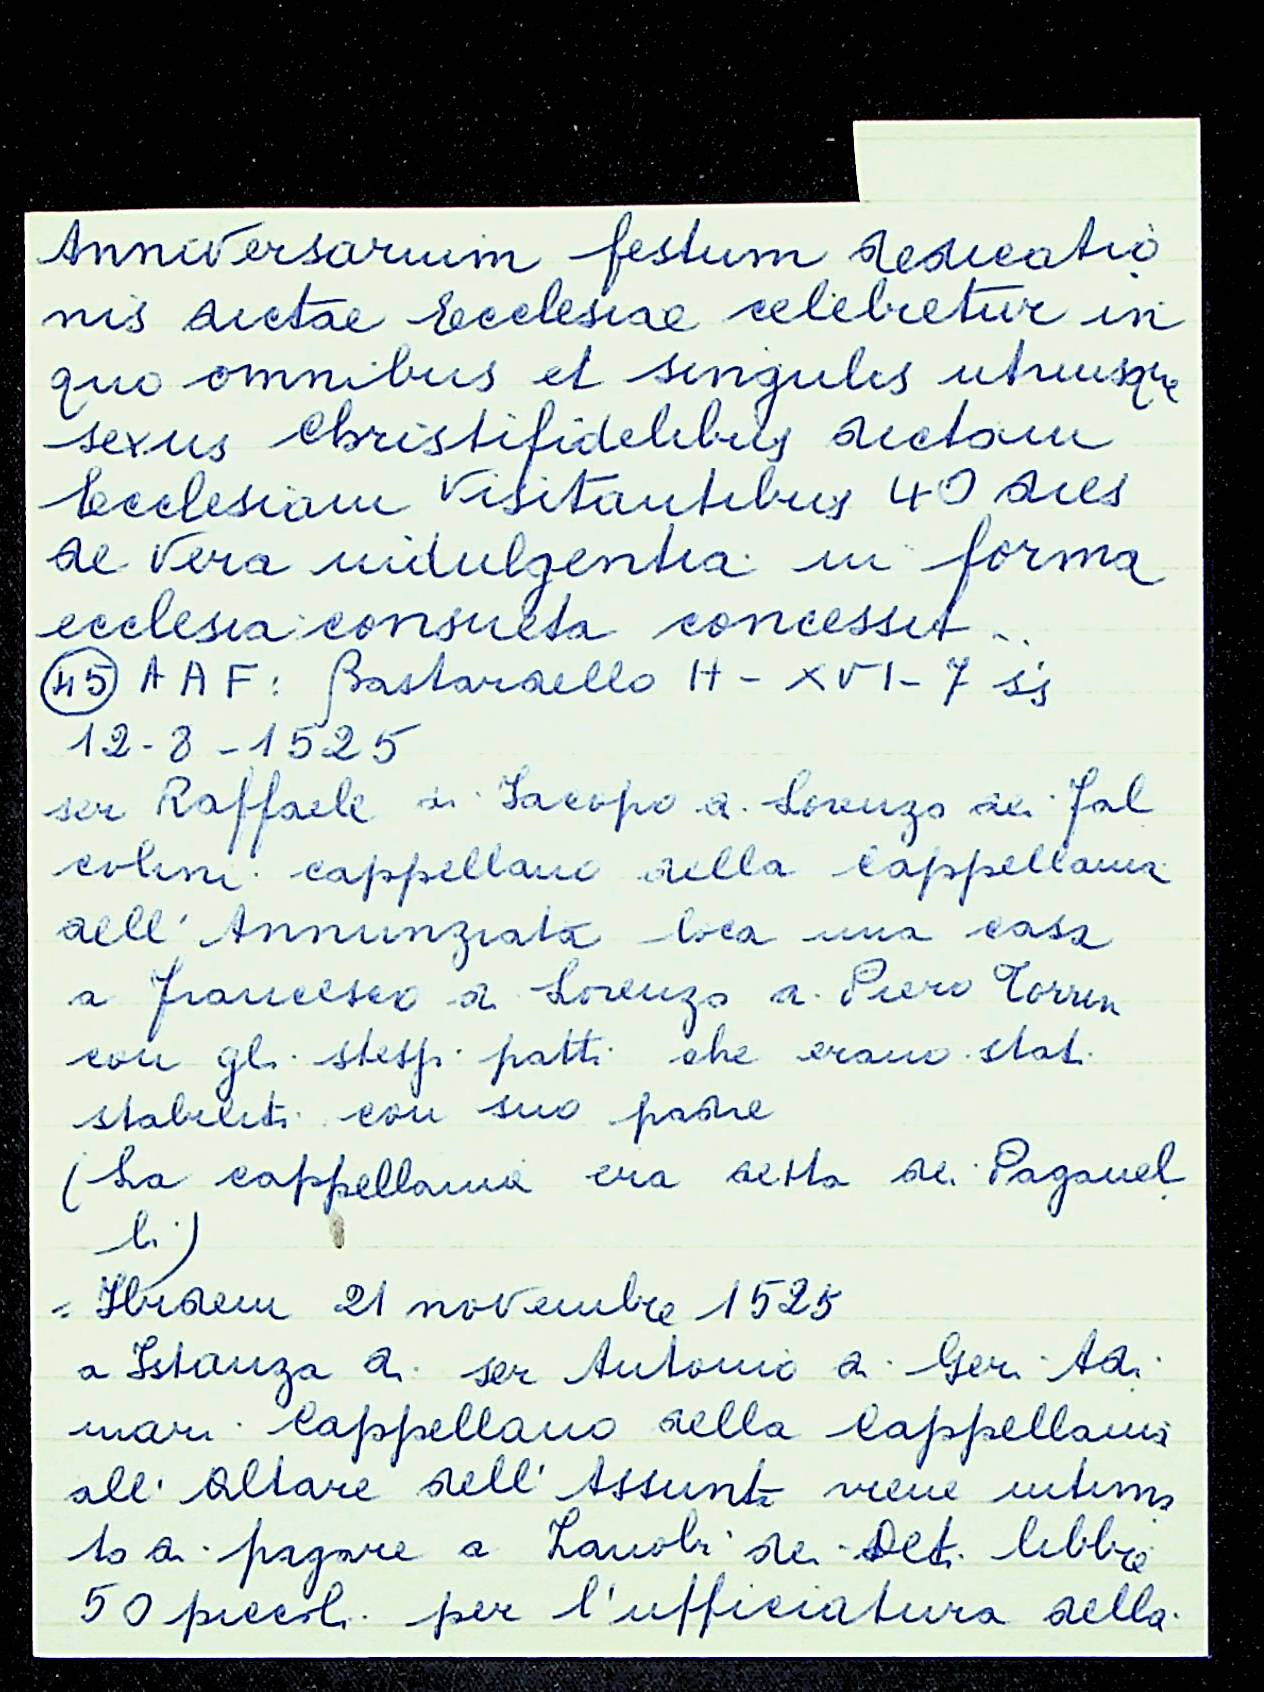 Anniversarium festum dedicatio
nis dictae Ecclesiae celebretur in
quo omnibus et singulis utriusque
sexus Christifidelibus dictam
Ecclesiam visitantibus 40 dies
de vera indulgentia in forma
ecclesia consueta concessit..
(45) AAF: Bastardello H - XVI - 7
12-8-1525
ser Raffaele di Iacopo di Lorenzo dei Fal
colini cappellano della Cappellania
dell'Annunziata loca una casa
a Francesco di Lorenzo di Piero
con gli stessi patti che erano stati
stabiliti con suo padre
(La cappellania era detta dei Paganel
li)
= Ibidem 21 novembre 1525
a Istanza di ser Antonio di Geri Adi
mari Cappellano della Cappellania
all'Altare dell'Assunta viene intima
to di pagare a Zanobi dei Deti libbre
50 piccoli per l'ufficiatura della